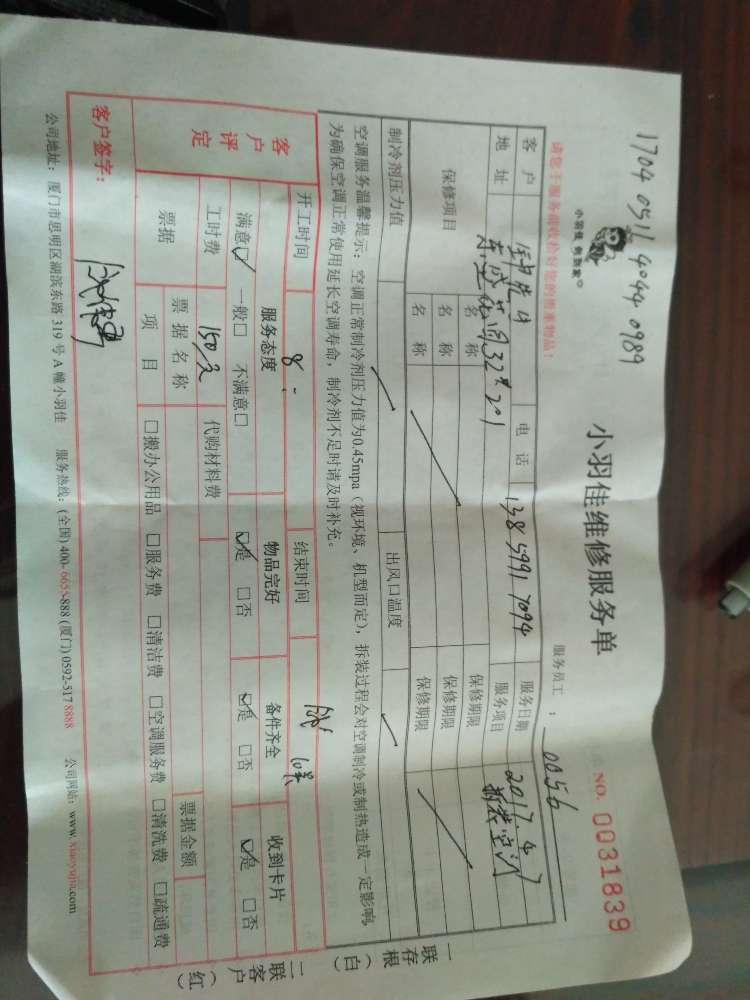 1704 0511 4044 0989
小羽佳 焦到家
小羽佳维修服务单
NO. 0031839
请您于服务前收拾好您的贵重物品！
服务员工： 0056
客户 电话 138 5991 7094 服务日期 2017.4.7
地址 32# 201 服务项目 拆装空调
保修项目 名称 保修期限
名称 保修期限
名称 保修期限
制冷剂压力值 出风口温度
空调服务温馨提示：空调正常制冷剂压力值为0.45mpa（视环境、机型而定），拆装过程会对空调制冷或制热造成一定影响
为确保空调正常使用延长空调寿命，制冷剂不足时请及时补充。
开工时间 8: 结束时间
客户评定 服务态度 物品完好 备件齐全 收到卡片
满意☑ 一般□ 不满意□ ☑是 □否 ☑是 □否 ☑是 □否
工时费 150元 代购材料费
票据 票据名称 票据金额
项目 □搬办公用品 □服务费 □清洁费 □空调服务费 □清洗费 □疏通费
客户签字：
公司地址：厦门市思明区湖滨东路 319 号 A 幢小羽佳 服务热线：(全国) 400-6655-888 (厦门) 0592-517 8888 公司网站：www.xiaoyujia.com
一存根（白）
二客户（红）
联
联